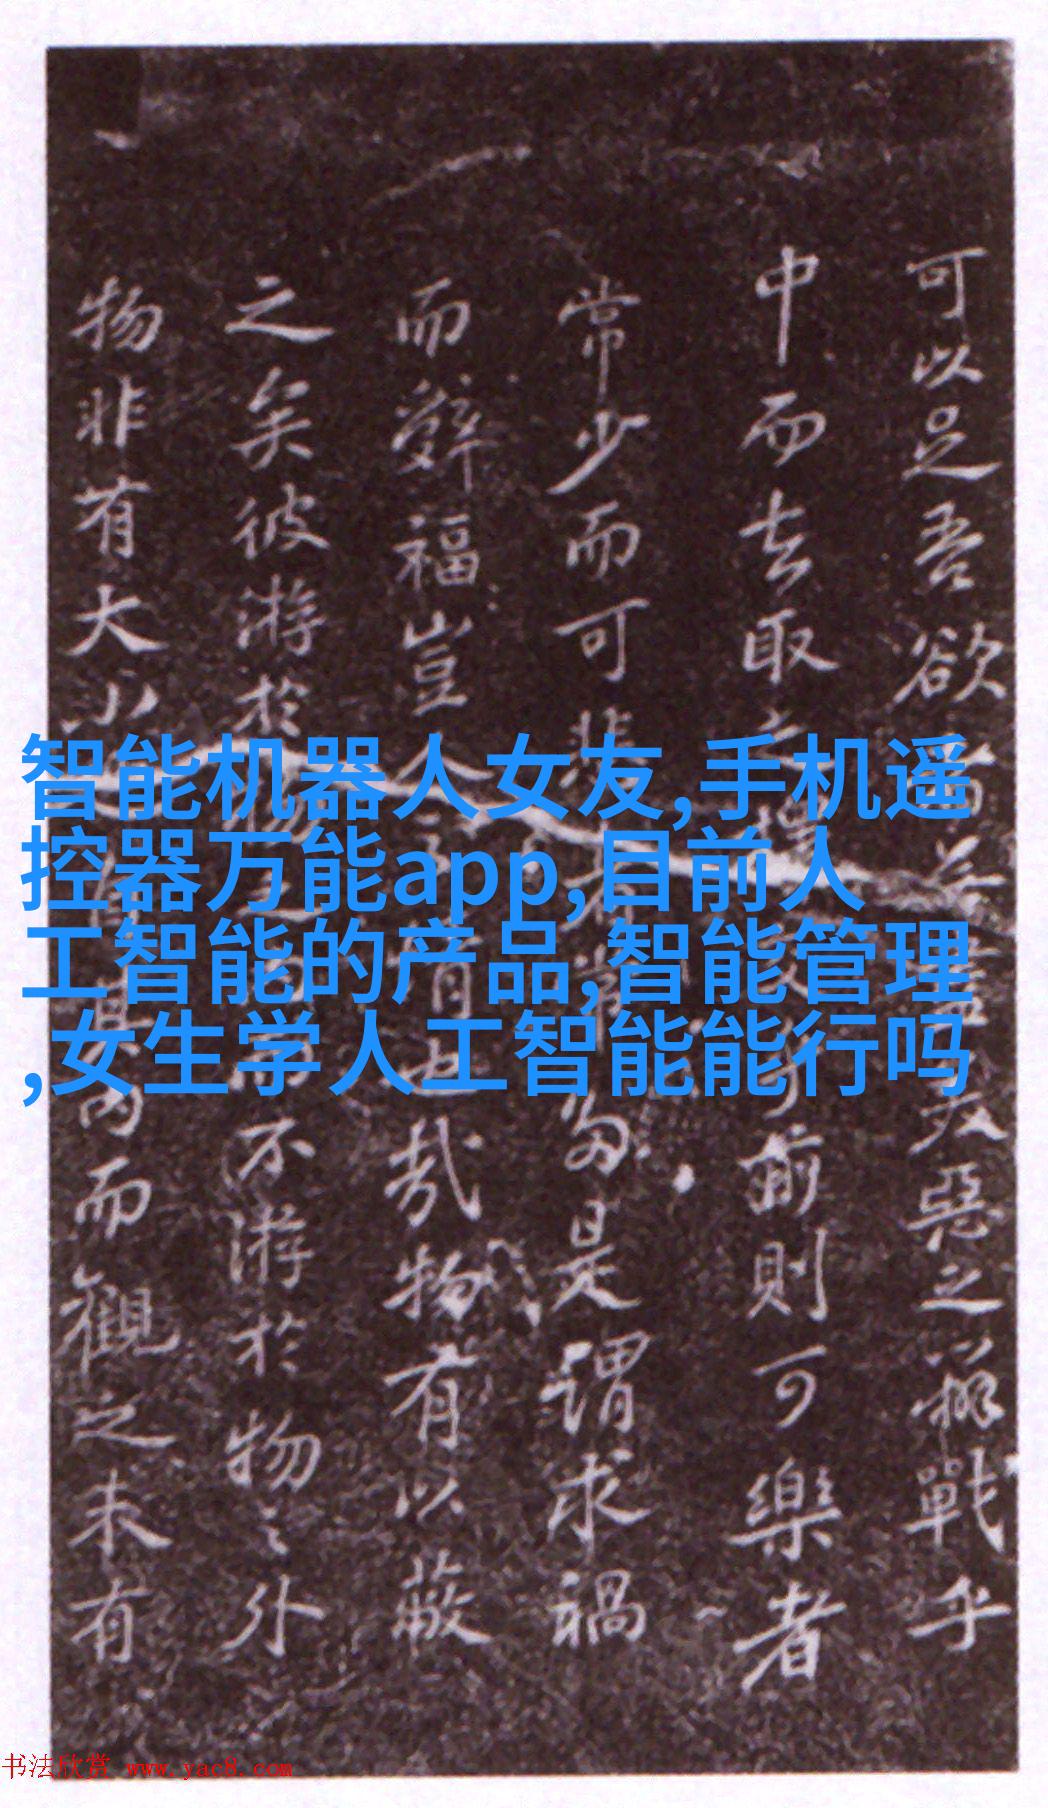 可以足吾欲
天惡之辨戰乎
中而去取之
前則可樂者
常少而可悲
是謂求禍
而辭福豈人
哉物有以蔽
之矣彼游於
不游於物之外
物非有大小
而觀之未有
智能机器人女友,手机遥
控器万能app,目前人
工智能的产品,智能管理
,女生学人工智能能行吗
书法欣赏 www.yac8.com